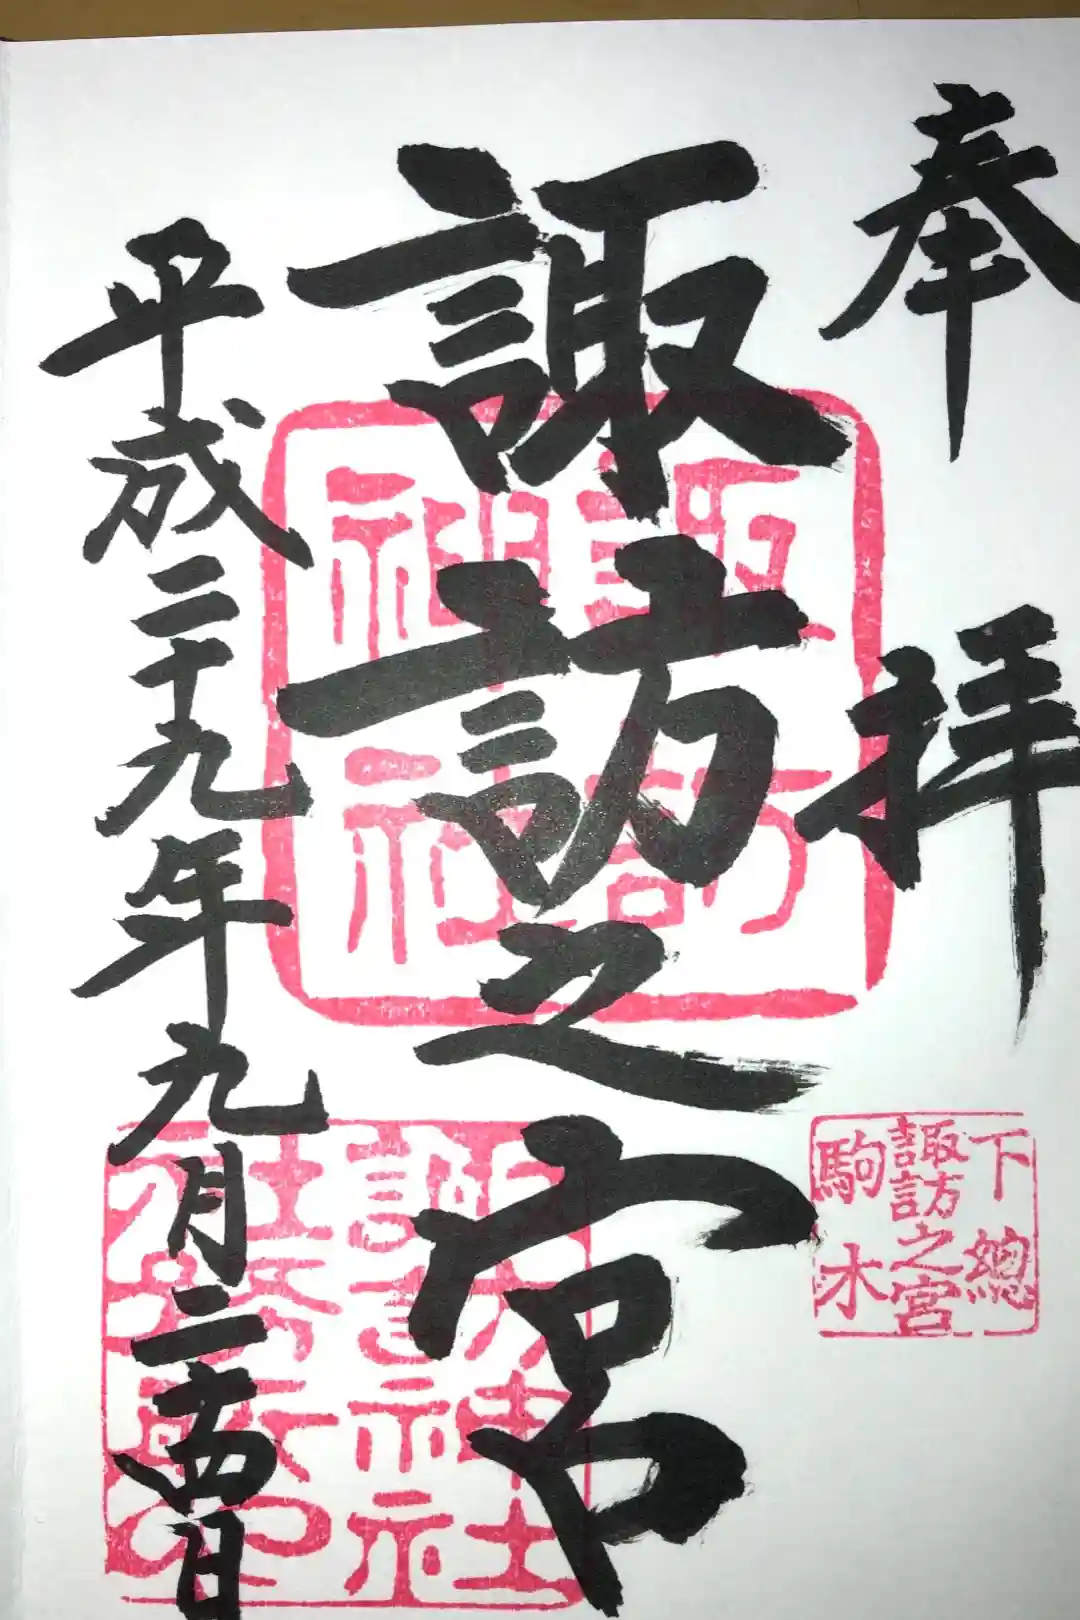 奉拝
諏訪之宮
平成二十九年九月二十四日
諏訪
神社
下總
諏訪之宮
駒木
諏訪神社
社務所